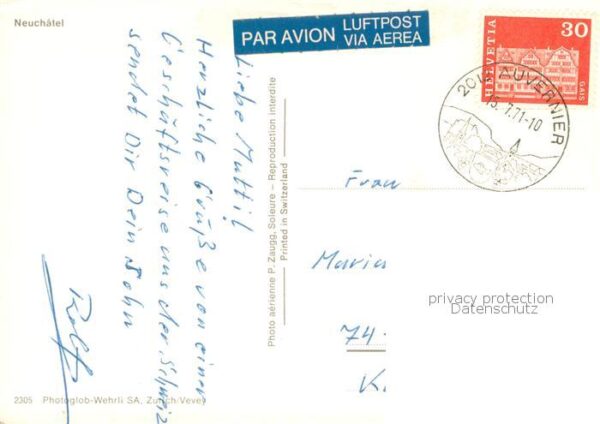 Neuchâtel
PAR AVION
LUFTPOST
VIA AEREA
HELVETIA
30
GAIS
2012 AUVERNIER
15. 7.71-10
Liebe Mutti!
Herzliche Grüße von einer
Geschäftsreise aus der Schweiz
sendet Dir Dein Sohn
Rolf
Photo aérienne P. Zaugg, Soleure – Reproduction interdite
Printed in Switzerland
Frau
Maria
74-
K.
privacy protection
Datenschutz
2305 Photoglob-Wehrli SA, Zürich-Vevey